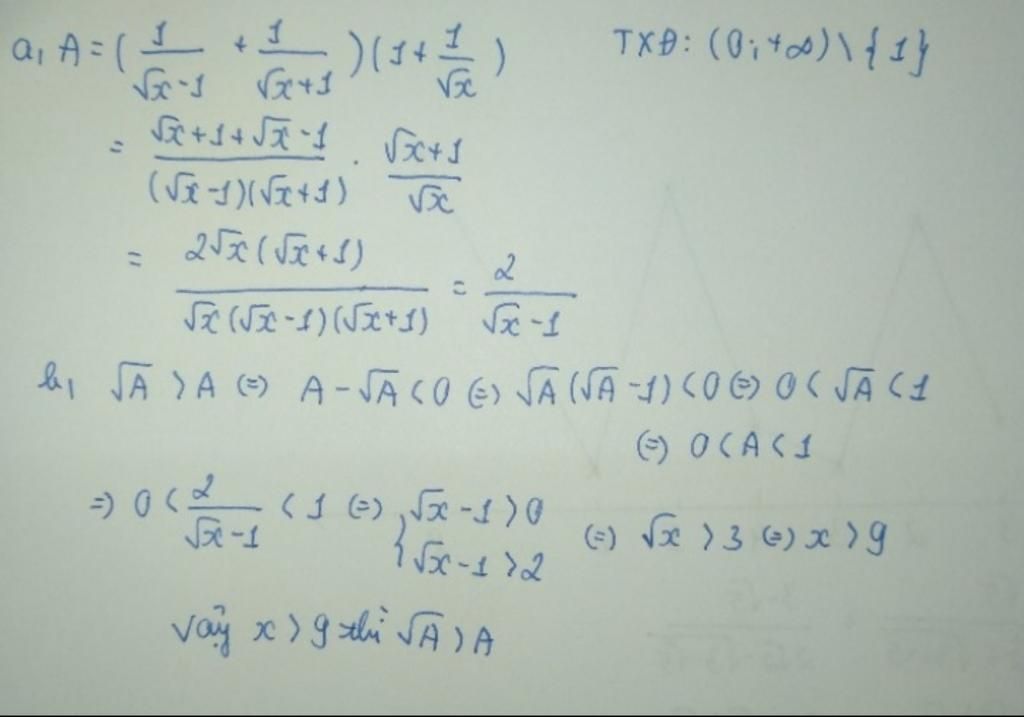 a, A = ( 1/(√x-1) + 1/(√x+1) ) ( 1 + 1/√x ) TXĐ: (0;+∞) \ {1}
= (√x+1+√x-1)/((√x-1)(√x+1)) . (√x+1)/√x
= 2√x(√x+1)/(√x(√x-1)(√x+1)) = 2/(√x-1)
b, √A > A (=) A-√A < 0 (=) √A(√A-1) < 0 (=) 0 < √A < 1
(=) 0 < A < 1
=) 0 < 2/(√x-1) < 1 (=) { √x-1 > 0
√x-1 > 2 (=) √x > 3 (=) x > 9
Vậy x > 9 thì √A > A